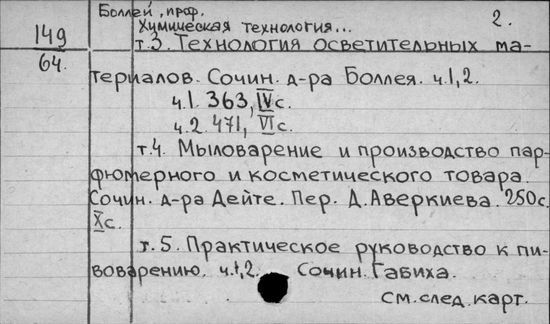 Боллей, проф.
2.
149
Химическая технология...
т.3. Технология осветительных ма-
64.
териалов. Сочин. д-ра Боллея. ч.1,2.
ч.1. 363, IV с.
ч.2. 471, VI с.
т.4. Мыловарение и производство пар-
фюмерного и косметического товара.
Сочин. д-ра Дейте. Пер. Д. Аверкиева. 250 с.
X с.
т.5. Практическое руководство к пи-
воварению. ч.1,2. Сочин. Габиха.
см. след. карт.